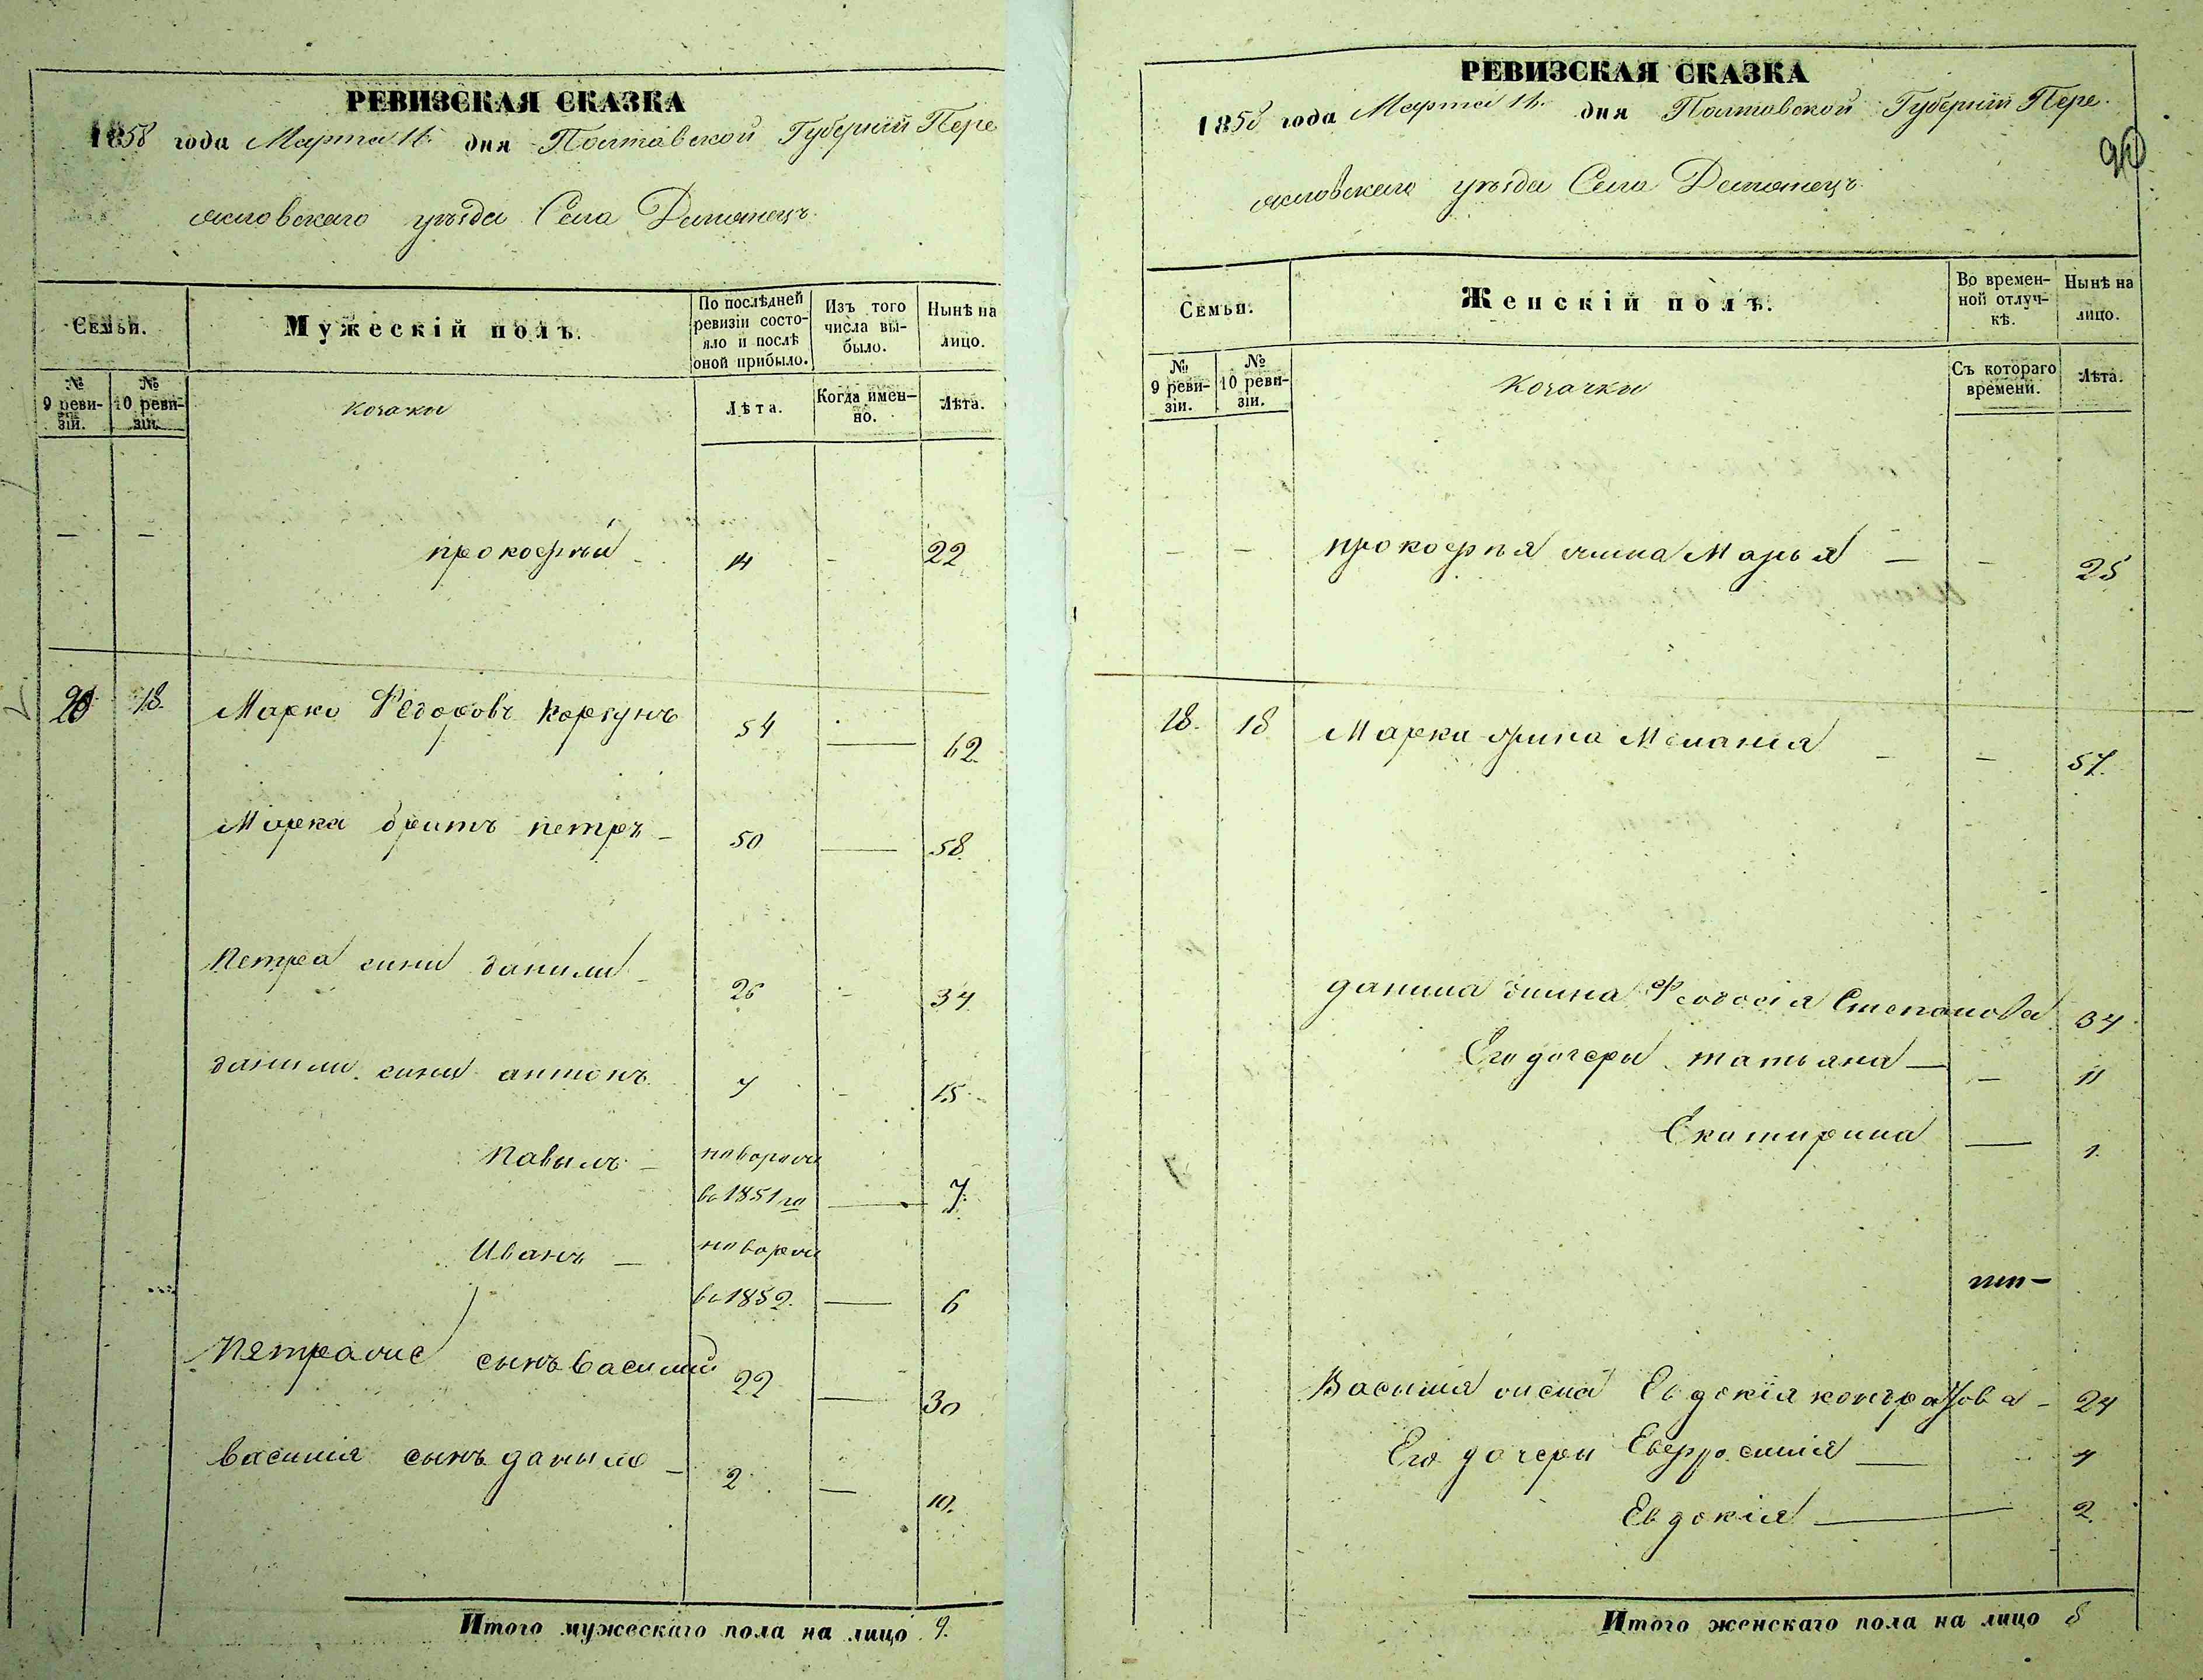 РЕВИЗСКАЯ СКАЗКА
1858 года Марта 14 дня Полтавской Губерніи Пере
яславскаго уѣзда Села Демянецъ
Семьи.
Мужескій полъ.
По послѣдней ревизіи состояло и послѣ оной прибыло.
Изъ того числа выбыло.
Нынѣ на лицо.
№ 9 ревизіи.
№ 10 ревизіи.
козаки
Лѣта.
Когда именно.
Лѣта.
— — прокофій 14 - 22
20 18. Марко Федоровъ Коргунъ 54 — 62
Марка братъ петръ 50 — 58
Петра синъ данило 26 - 34
данили синъ антонъ 7 - 15
Павылъ — новорож
во 1851 го — 7
Иванъ — новорож
во 1852. — 6
Петра сынъ василий 22 — 30
василия сынъ данило 2 — 10.
Итого мужескаго пола на лицо 9.
РЕВИЗСКАЯ СКАЗКА
1858 года Марта 14 дня Полтавской Губерніи Пере
яславскаго уѣзда Села Демянецъ
Семьи.
Женскій полъ.
Во временной отлучкѣ.
Нынѣ на лицо.
№ 9 ревизіи.
№ 10 ревизіи.
козачки
Съ котораго времени.
Лѣта.
— — прокофія жина Марья — - 25
18. 18 Марка жина Меланія - - 57.
данила жина Феодосія Степанова 34
Его дочеры татьяна — - 11
Екатирина — 1.
Василия жена Евдокія кондратова - 24
Его дочеры Евфросинія — 4
Евдокія — 2.
Итого женскаго пола на лицо 8